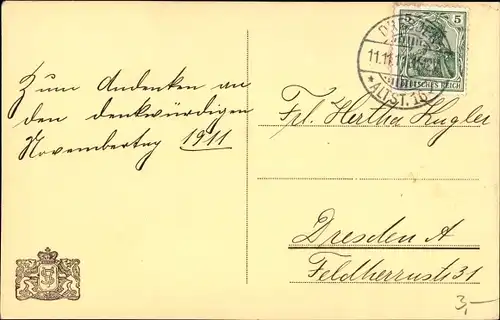 Zum Andenken an
den denkwürdigen
Novembertag 1911
DRESDEN
11.11.11.11
* ALTST. 16
5
DEUTSCHES REICH
Frl. Hertha Kugler
Dresden A
Feldherrnstr. 31
3,-